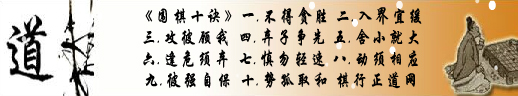 道
《围棋十诀》 一.不得贪胜 二.入界宜缓
三.攻彼顾我 四.弃子争先 五.舍小就大
六.逢危须弃 七.慎勿轻速 八.动须相应
九.彼强自保 十.势孤取和 棋行正道网